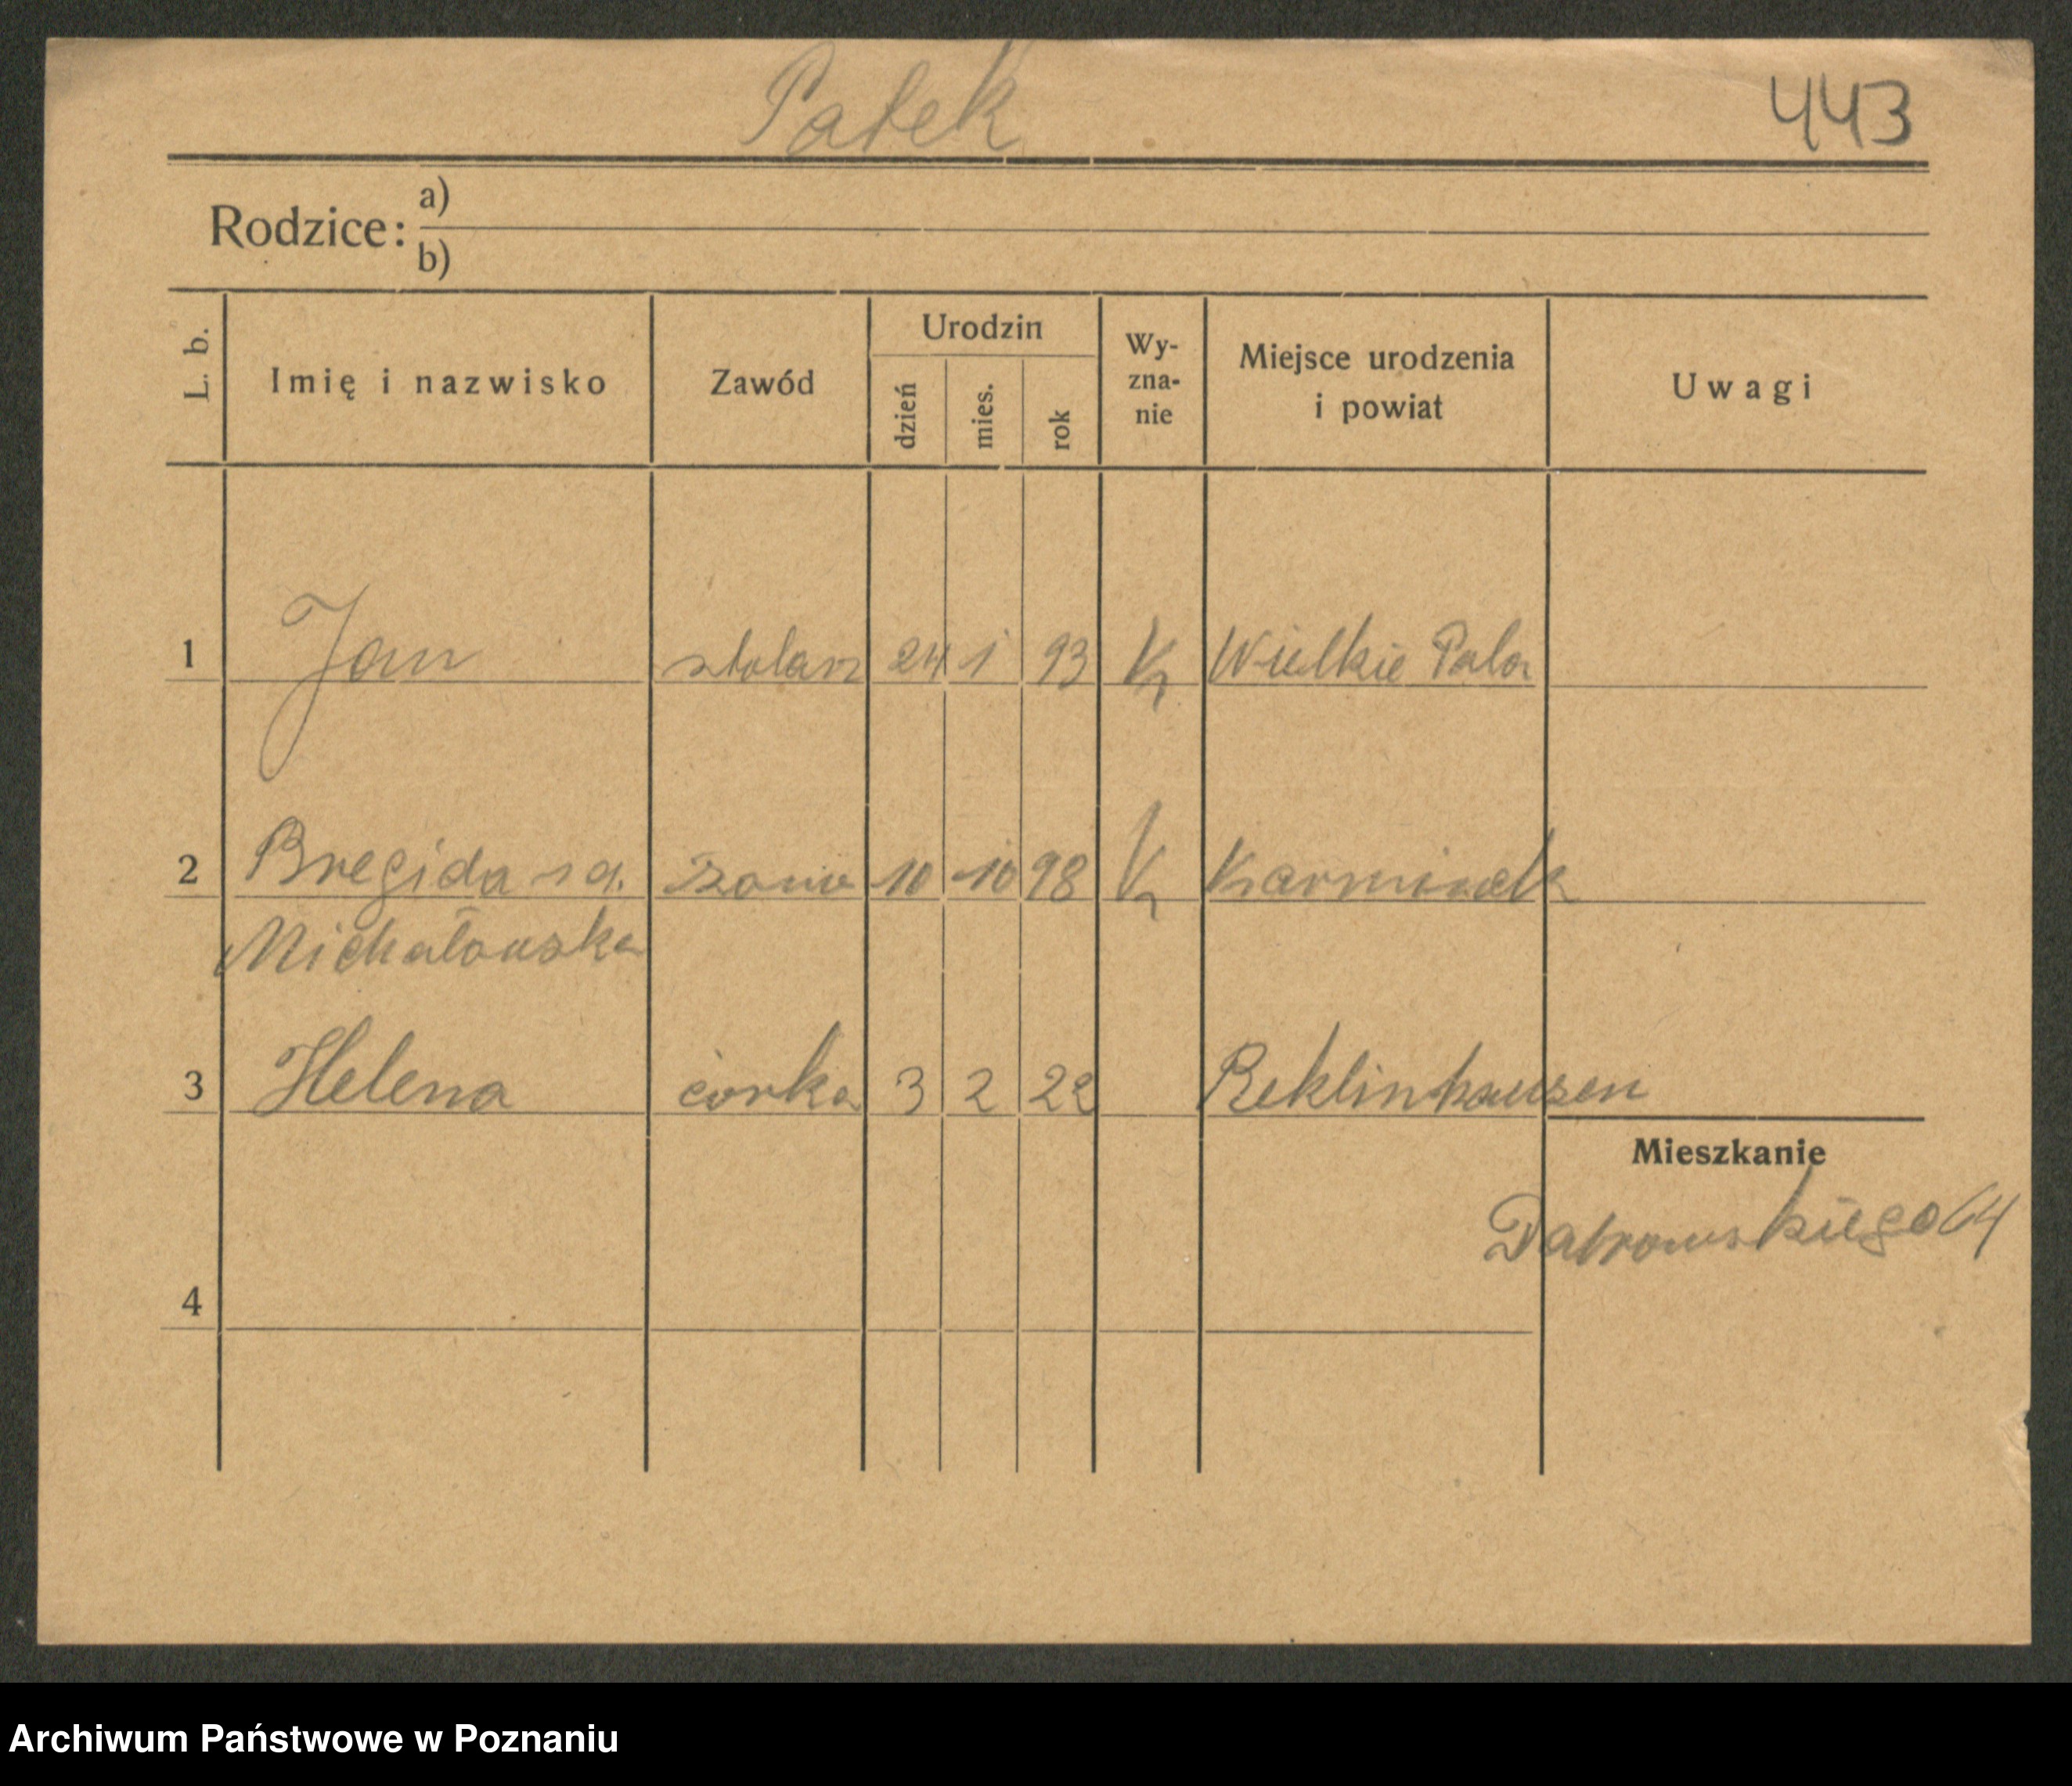 Patek
443
Rodzice: a)
b)
L. b.
Imię i nazwisko
Zawód
Urodzin
dzień
mies.
rok
Wy-
zna-
nie
Miejsce urodzenia
i powiat
Uwagi
1 Jan stolarz 24 1 93 K Wielkie
2 Bregida żona 10 10 98 K Karminek
Michałowska
3 Helena córka 3 2 22 Reklinhausen
Mieszkanie
Dabrowskiego 64
4
Archiwum Państwowe w Poznaniu